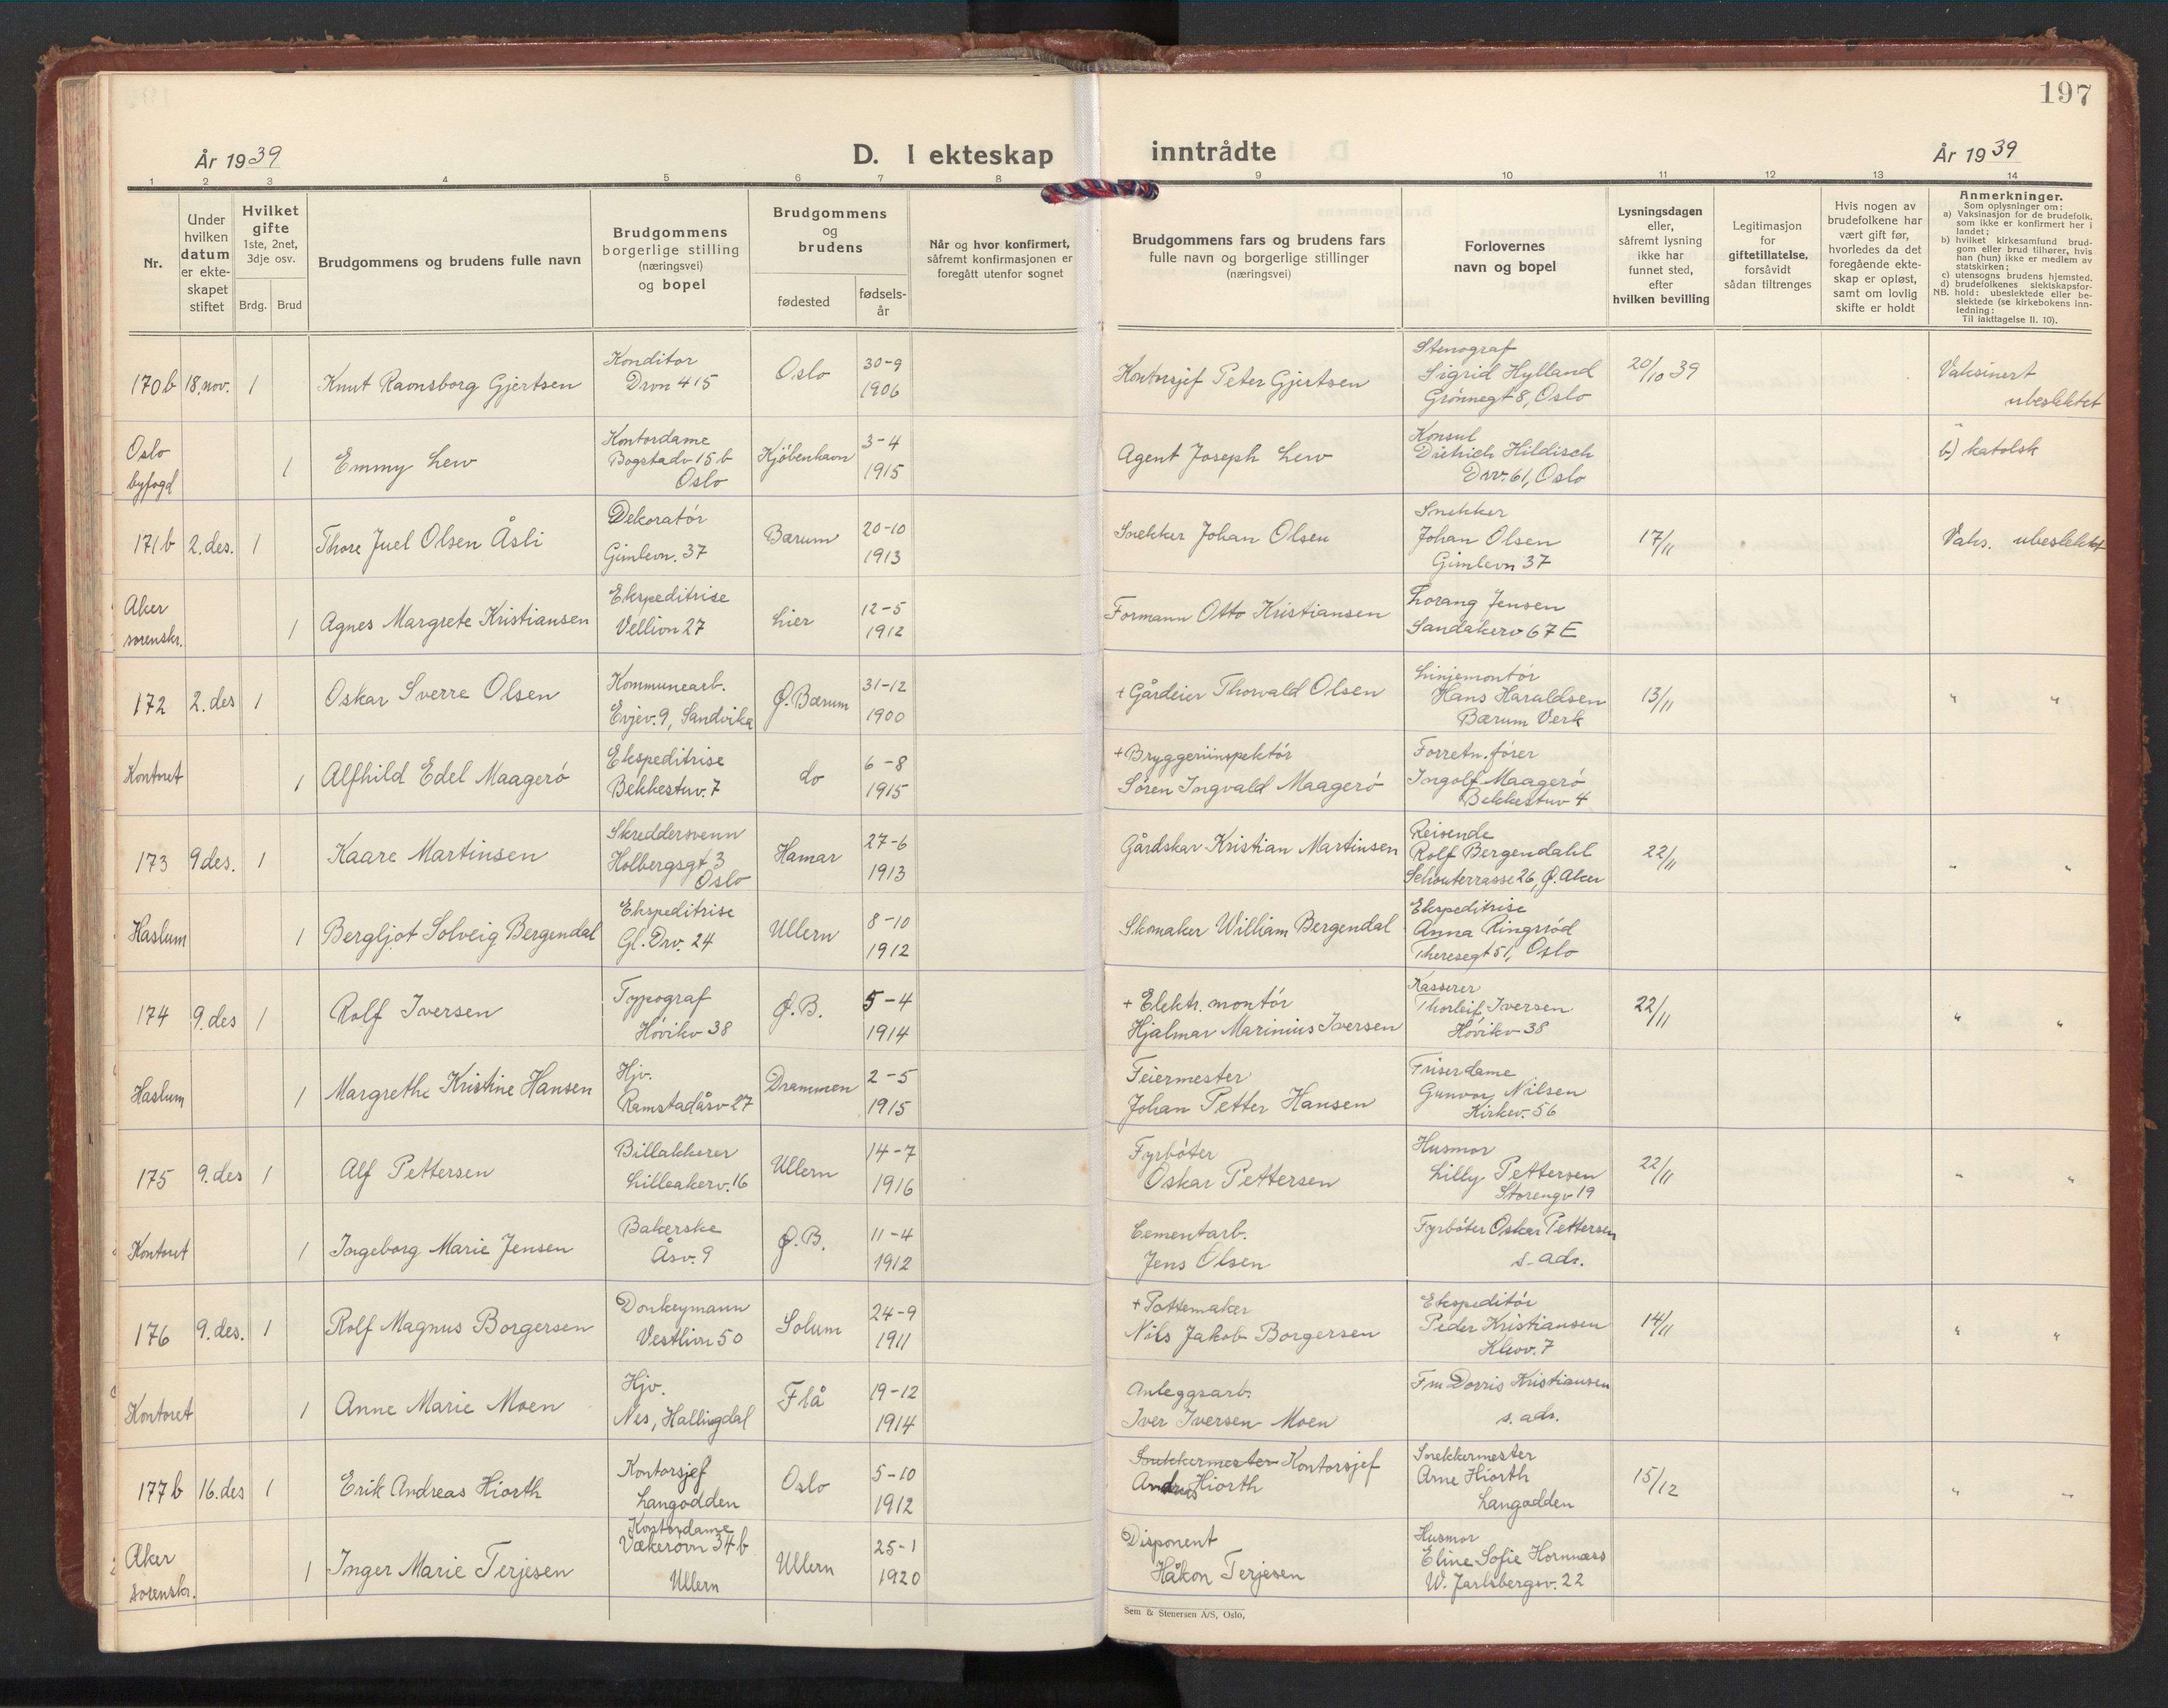 197
År 1939
D. I ekteskap inntrådte
År 1939
1 2 3 4 5 6 7 8 9 10 11 12 13 14
Nr.
Under hvilken datum er ekteskapet stiftet
Hvilket gifte
1ste, 2net, 3dje osv.
Brdg. Brud
Brudgommens og brudens fulle navn
Brudgommens borgerlige stilling (næringsvei) og bopel
Brudgommens og brudens
fødested
fødsels-år
Når og hvor konfirmert, såfremt konfirmasjonen er foregått utenfor sognet
Brudgommens fars og brudens fars fulle navn og borgerlige stillinger (næringsvei)
Forlovernes navn og bopel
Lysningsdagen eller, såfremt lysning ikke har funnet sted, efter hvilken bevilling
Legitimasjon for giftetillatelse, forsåvidt sådan tiltrenges
Hvis nogen av brudefolkene har vært gift før, hvorledes da det foregående ekteskap er opløst, samt om lovlig skifte er holdt
Anmerkninger.
Som oplysninger om:
a) Vaksinasjon for de brudefolk, som ikke er konfirmert her i landet;
b) hvilket kirkesamfund brudgom eller brud tilhører, hvis han (hun) ikke er medlem av statskirken;
c) utensogns brudens hjemsted.
d) brudefolkenes slektskapsforhold: ubeslektede eller beslektede (se kirkebokens innledning:
NB.
Til iakttagelse II. 10).
170b 18. nov. 1 Knut Ramsborg Gjertsen Konditor Drvn 415 Oslo 30-9 1906 Kontorsjef Peter Gjertsen Stenograf Sigrid Hylland Grønnegt 8, Oslo 20/10 39 Vaksinert ubeslektet
Oslo byfogd 1 Emmy Lew Kontordame Bogstadv 15 b Oslo Kjøbenhavn 3-4 1915 Agent Joseph Lew Konsul Dietrich Hildisch Drv. 61, Oslo b) katolsk
171b 2. des. 1 Thore Juel Olsen Åsli Dekoratør Gimlevn. 37 Bærum 20-10 1913 Snekker Johan Olsen Snekker Johan Olsen Gimlevn 37 17/11 Vaks. ubeslektet
Aker sorenskr. 1 Agnes Margrete Kristiansen Ekspeditrise Vellivn 27 Lier 12-5 1912 Formann Otto Kristiansen Lorang Jensen Sandakerv 67 E
172 2. des 1 Oskar Sverre Olsen Kommunearb. Evjev. 9, Sandvika Ø. Bærum 31-12 1900 + Gårdeier Thorvald Olsen Linjemontør Hans Haraldsen Bærum Verk 13/11 " "
Kontoret 1 Alfhild Edel Maagerø Ekspeditrise Bekkestuv. 7 do 6-8 1915 + Bryggeriinspektør Søren Ingvald Maagerø Forretn. fører Ingolf Maagerø Bekkestuv 4
173 9 des. 1 Kaare Martinsen Skreddersvenn Holbergsgt 3 Oslo Hamar 27-6 1913 Gårdskar Kristian Martinsen Reisende Rolf Bergendahl Schouterrasse 26, Ø. Aker 22/11 " "
Haslum 1 Bergljot Solveig Bergendal Ekspeditrise Gl. Drv. 24 Ullern 8-10 1912 Skomaker William Bergendal Ekspeditrise Anna Ringsrød Theresegt 51, Oslo
174 9. des 1 Rolf Iversen Typograf Høvikv 38 Ø. B. 5-4 1914 + Elektr. montør Hjalmar Marinius Iversen Kasserer Thorleif Iversen Høvikv 38 22/11 " "
Haslum 1 Margrethe Kristine Hansen Hjv. Ramstadåsv 27 Drammen 2-5 1915 Feiermester Johan Petter Hansen Friserdame Gunvor Nilsen Kirkev. 56
175 9. des 1 Alf Pettersen Billakkerer Lilleakerv. 16 Ullern 14-7 1916 Fyrbøter Oskar Pettersen Husmor Lilly Pettersen Storengv 19 22/11 " "
Kontoret 1 Ingeborg Marie Jensen Bakerske Åsv. 9 Ø. B. 11-4 1912 Cementarb. Jens Olsen Fyrbøter Oskar Pettersen s. adr.
176 9. des. 1 Rolf Magnus Borgersen Donkeymann Vestlivn 50 Solum 24-9 1911 + Pottemaker Nils Jakob Borgersen Ekspeditør Peder Kristiansen Kleov. 7 14/11 " "
Kontoret 1 Anne Marie Moen Hjv. Nes, Hallingdal Flå 19-12 1914 Anleggsarb. Iver Iversen Moen Fru Dorris Kristiansen s. adr.
177b 16. des 1 Erik Andreas Hiorth Kontorsjef Langodden Oslo 5-10 1912 Snekkermester Kontorsjef Andreas Hiorth Snekkermester Arne Hiorth Langodden 15/12 " "
Aker sorenskr. 1 Inger Marie Terjesen Kontordame Vækerøvn 34 b Ullern Ullern 25-1 1920 Disponent Håkon Terjesen Husmor Eline Sofie Hornnæss W. Jarlsbergsv. 22
Sem & Stenersen A/S, Oslo,